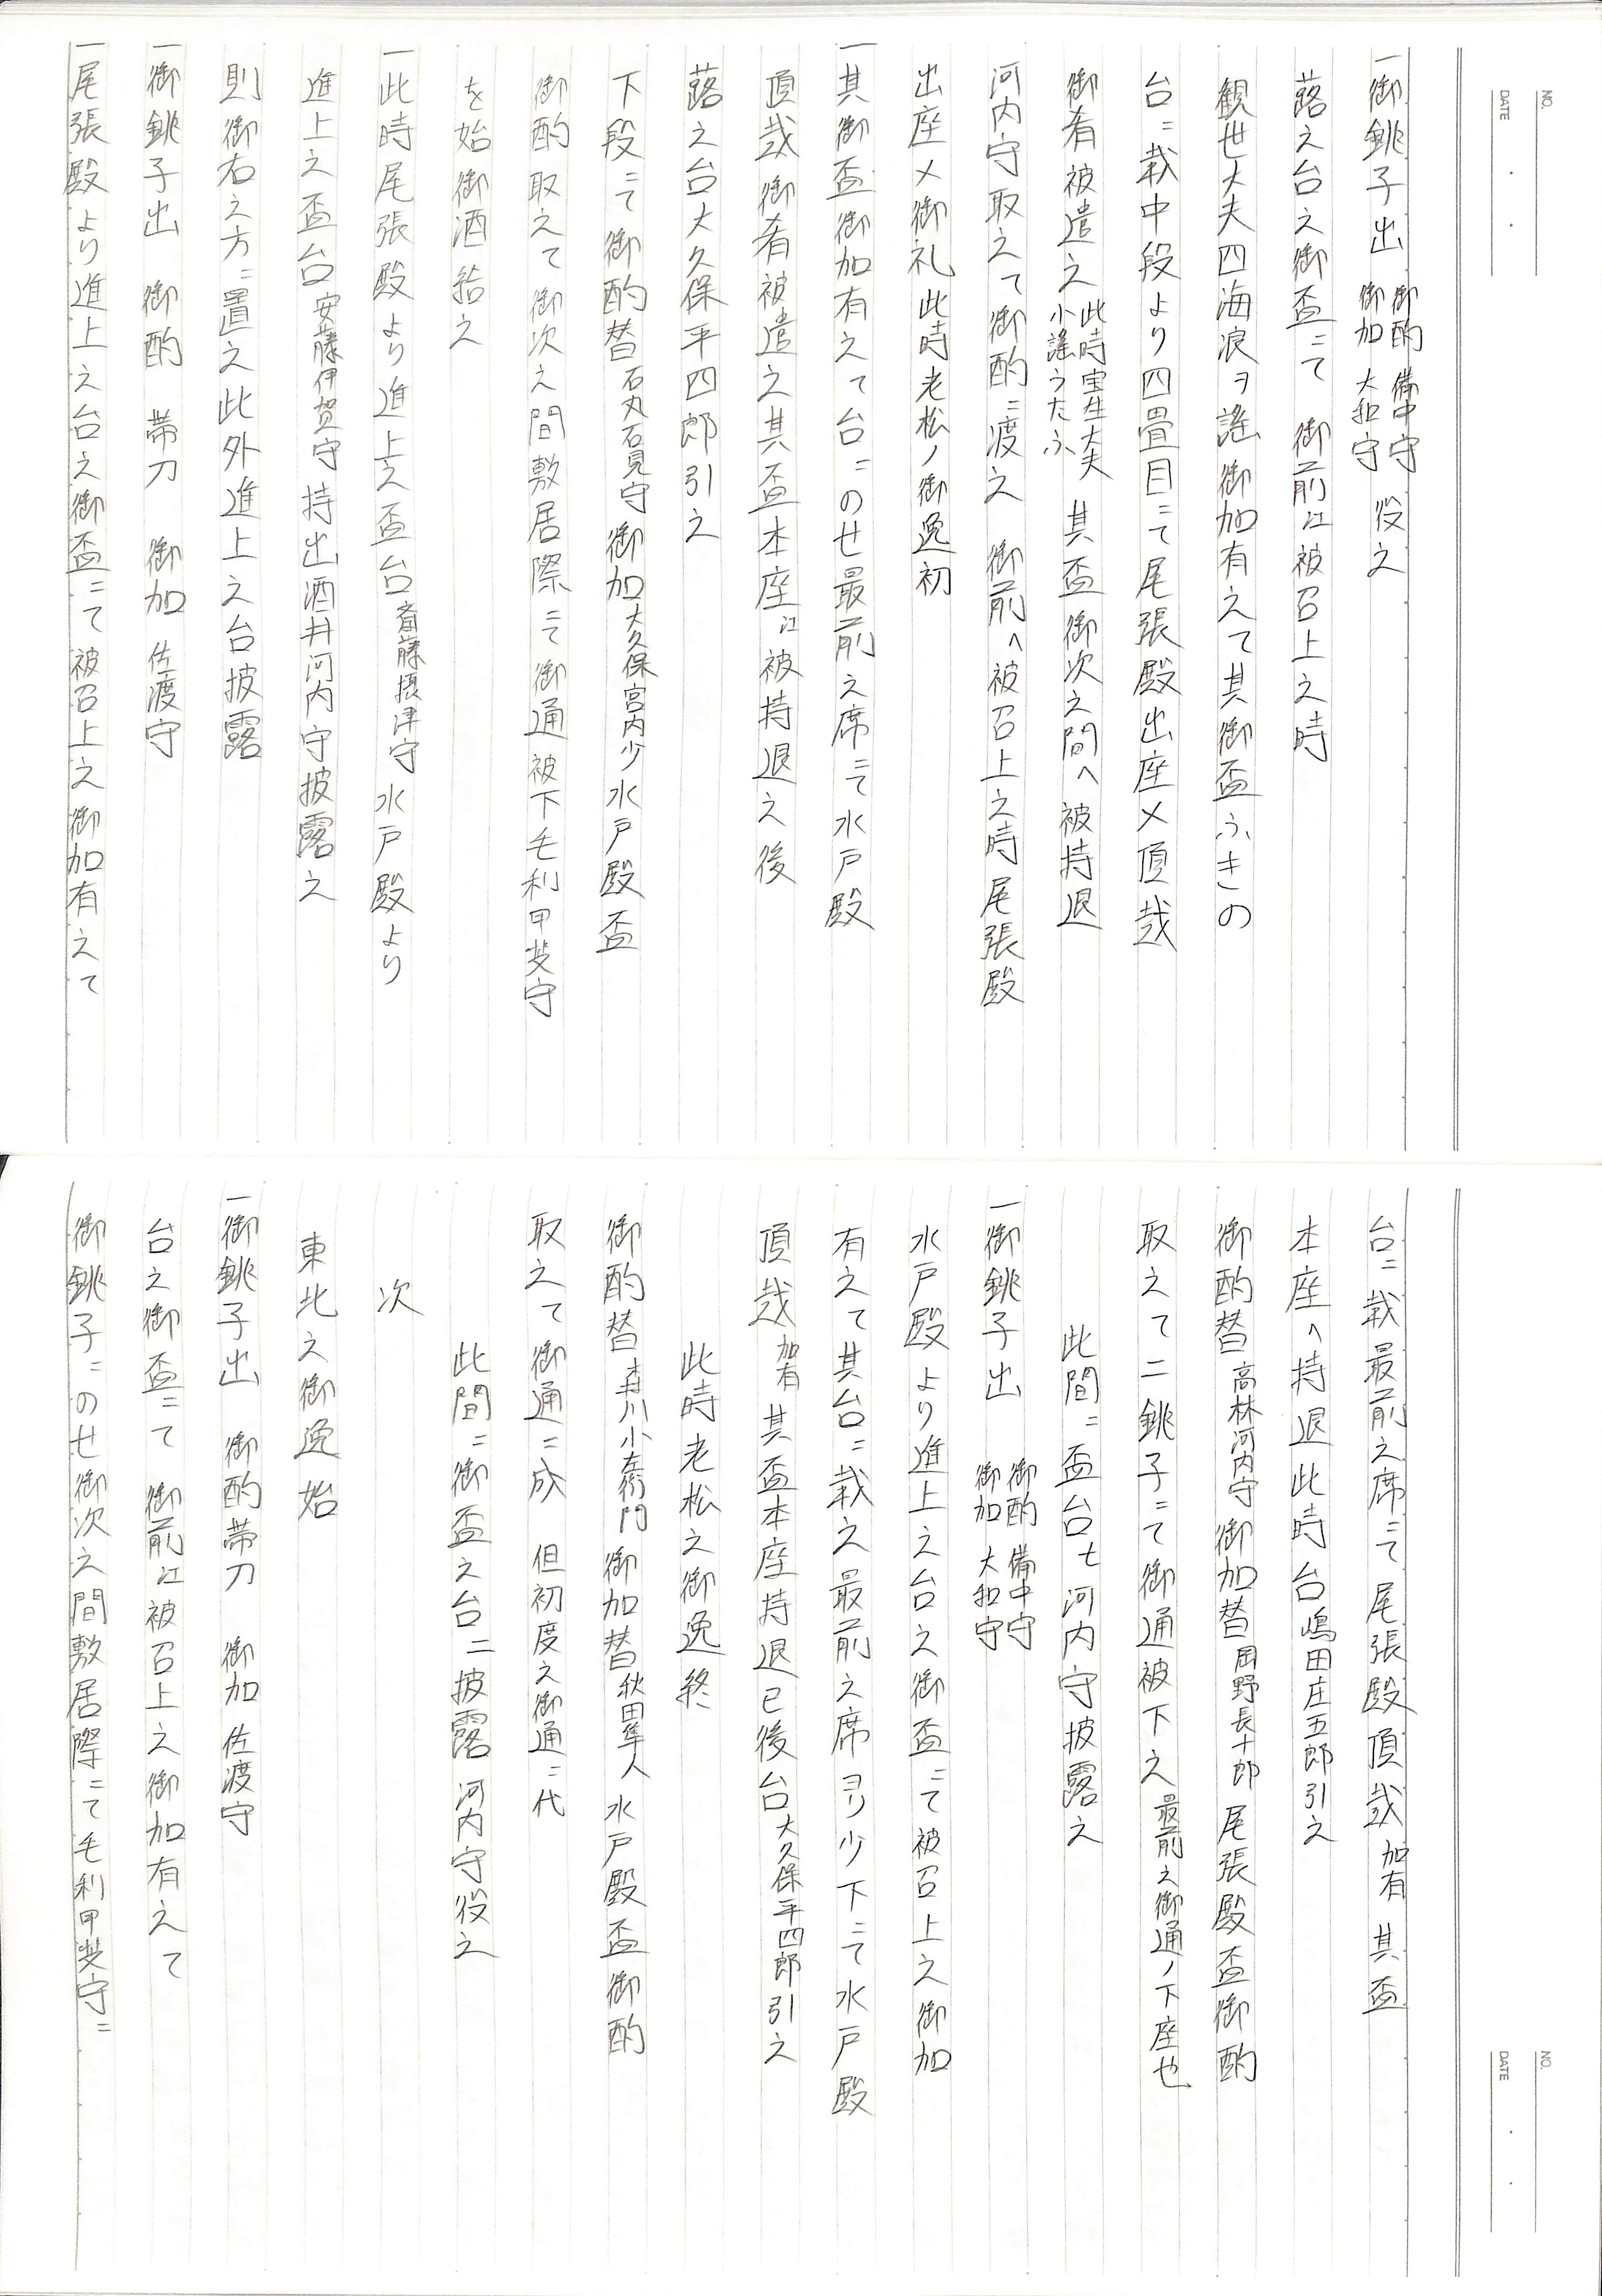 NO.
DATE
一御銚子出 御酌 備中守 御加 大和守 役之
蕗之台之御盃ニて 御前江被召上之時
観世大夫四海浪ヲ謡御加有之て其御盃ふきの
台ニ載中段より四畳目ニて尾張殿出座〆頂戴
御肴被遣之 此時宝生大夫 小謡うたふ 其盃御次之間へ被持退
河内守取之て御酌ニ渡之 御前へ被召上之時尾張殿
出座〆御礼此時老松ノ御逸初
一其御盃御加有之て台ニのせ最前之席ニて水戸殿
頂戴御肴被遣之其盃本座江被持退之後
蕗之台大久保平四郎引之
下段ニて御酌替石丸石見守御加大久保宮内少水戸殿盃
御酌取之て御次之間敷居際ニて御通被下毛利甲斐守
を始御酒給之
一此時尾張殿より進上之盃台斎藤摂津守水戸殿より
進上之盃台安藤伊賀守持出酒井河内守披露之
則御右之方ニ置之此外進上之台披露
一御銚子出 御酌 帯刀 御加 佐渡守
一尾張殿より進上之台之御盃ニて被召上之御加有之て
NO.
DATE
台ニ載最前之席ニて尾張殿頂戴 加有 其盃
本座へ持退此時台嶋田庄五郎引之
御酌替高林河内守御加替岡野長十郎尾張殿盃御酌
取之て二銚子ニて御通被下之 最前之御通ノ下座也
此間ニ盃台七河内守披露之
一御銚子出 御酌 備中守 御加 大和守
水戸殿より進上之台之御盃ニて被召上之御加
有之て其台ニ載之最前之席ヨリ少下ニて水戸殿
頂戴 加有 其盃本座持退已後台大久保平四郎引之
此時老松之御逸終
御酌替 小左衛門 御加替秋田隼人水戸殿盃御酌
取之て御通ニ成 但初度之御通ニ代
此間ニ御盃之台二披露河内守役之
次
東北之御逸始
一御銚子出 御酌帯刀 御加佐渡守
台之御盃ニて 御前江被召上之御加有之て
御銚子ニのせ御次之間敷居際ニて毛利甲斐守ニ